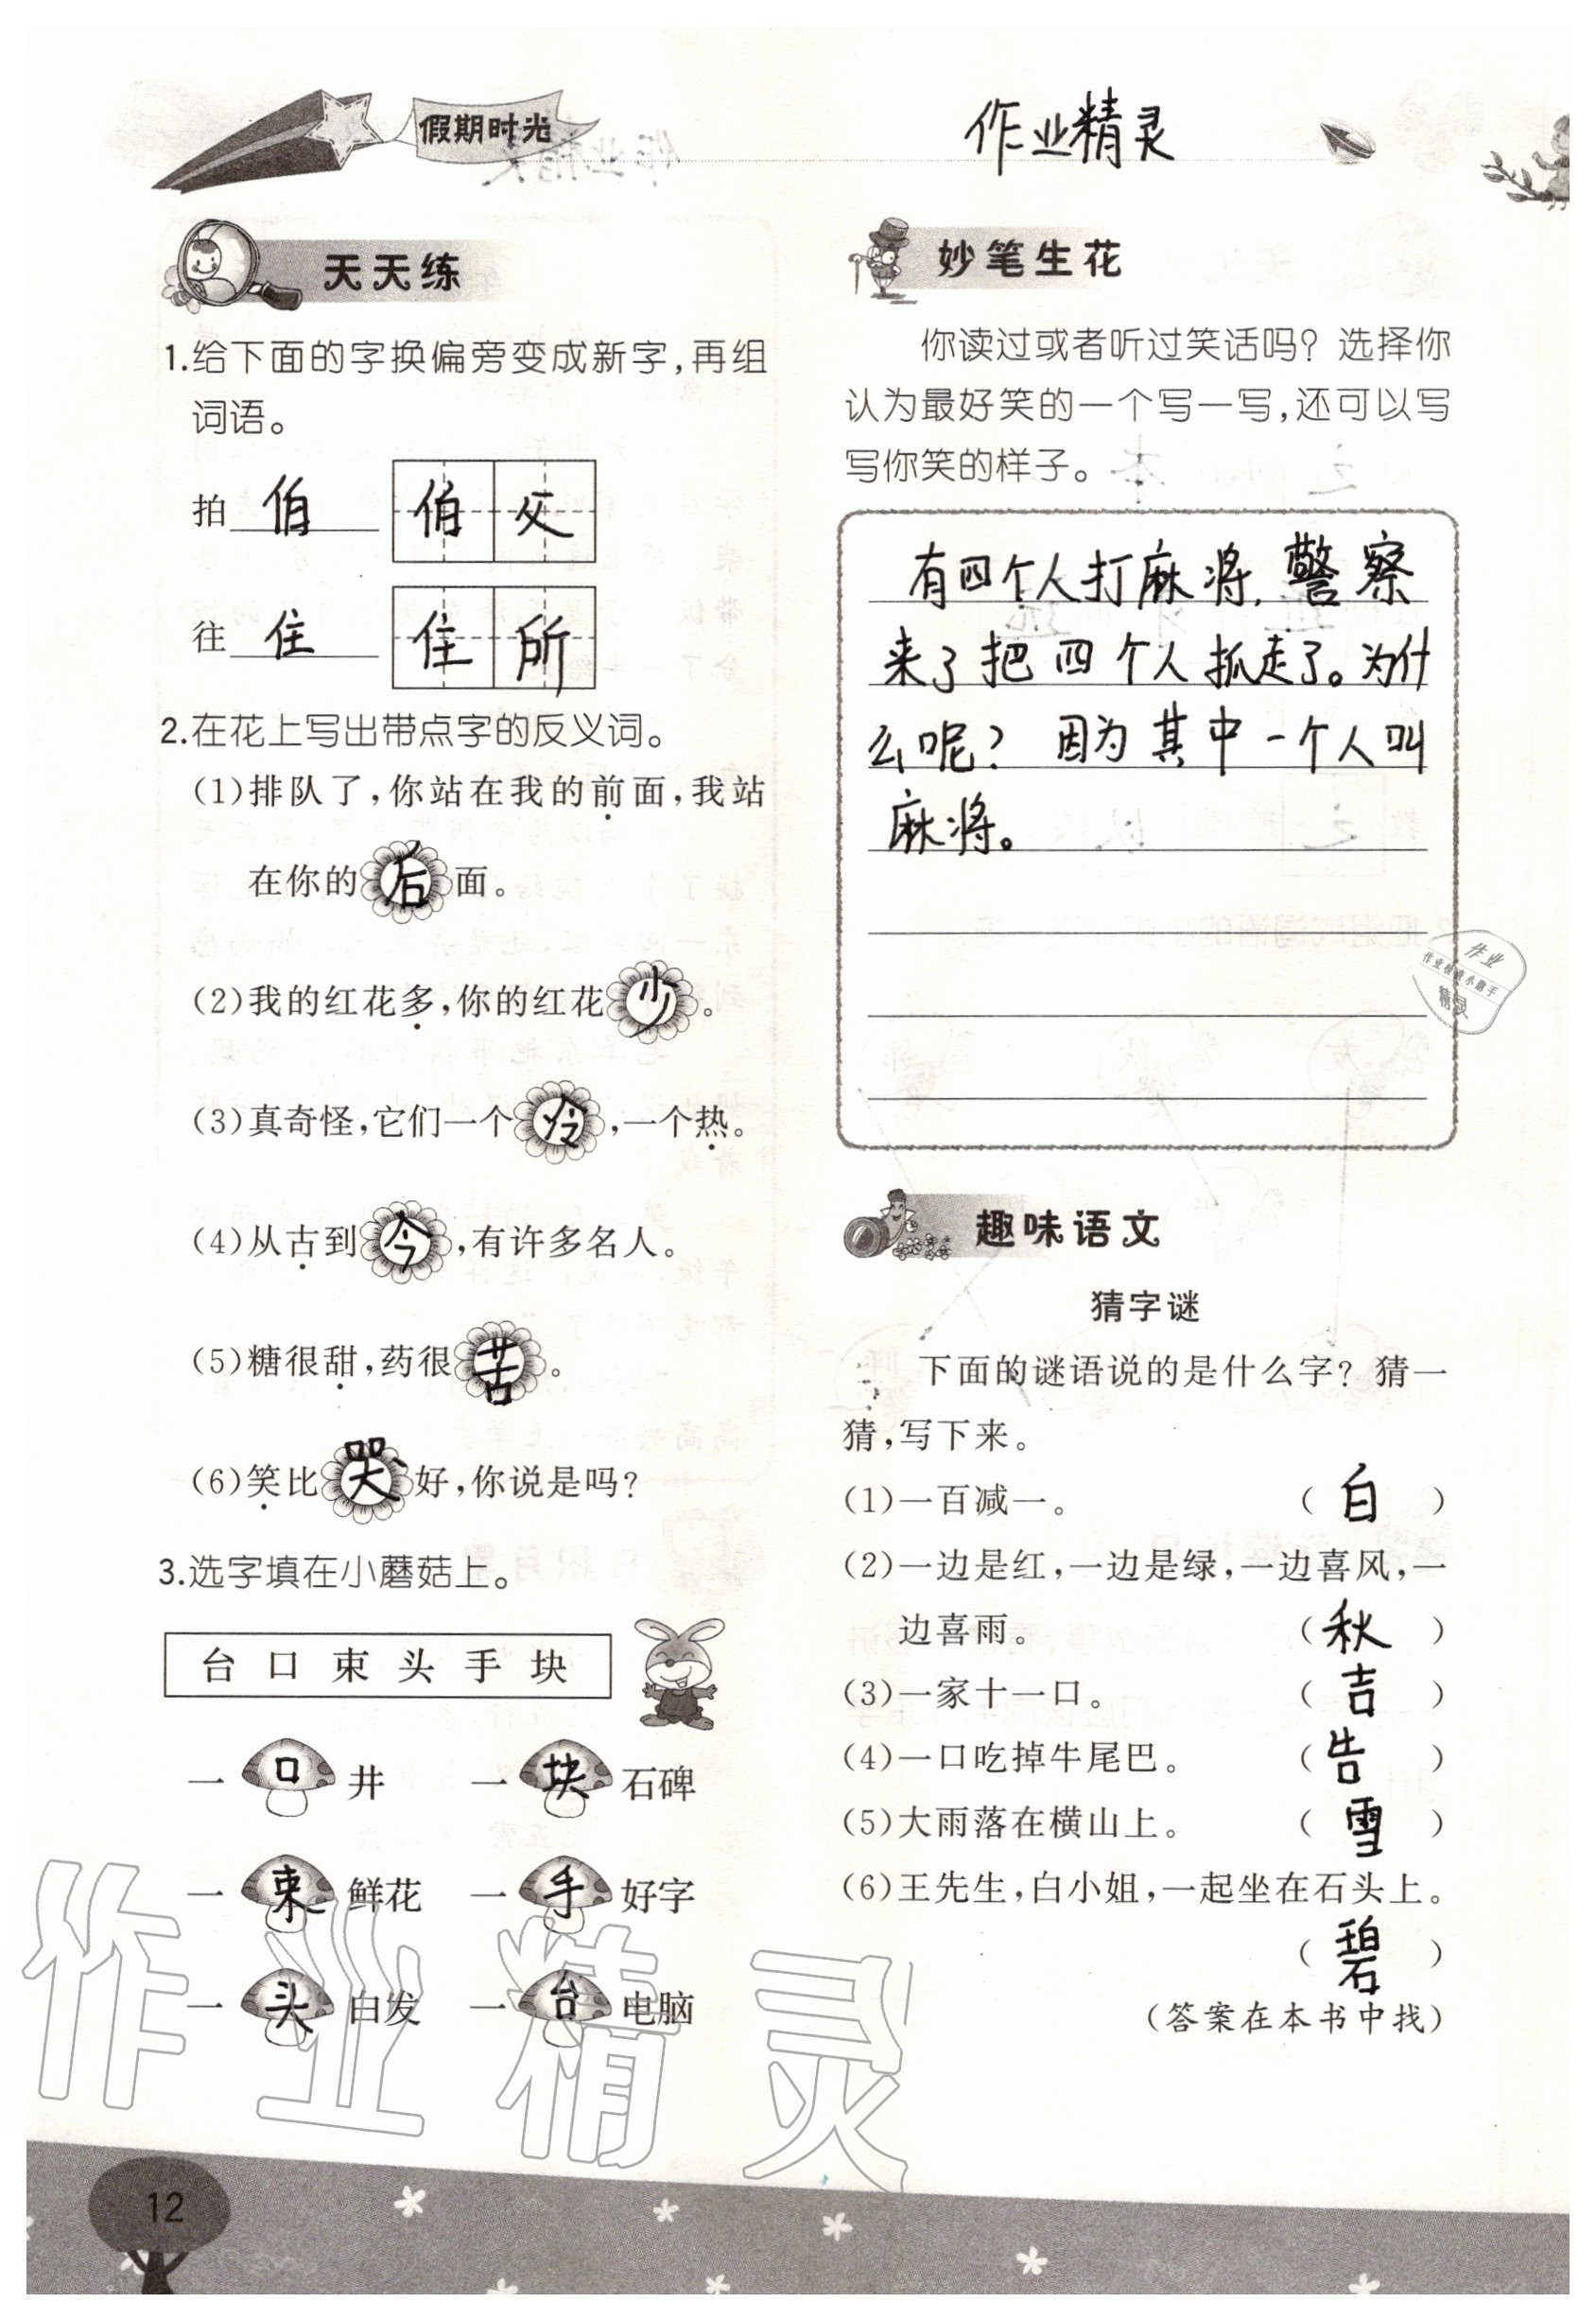 假期时光
作业精灵
天天练
1.给下面的字换偏旁变成新字,再组
词语。
拍 伯 伯父
往 住 住所
2.在花上写出带点字的反义词。
(1)排队了,你站在我的前面,我站
在你的后面。
(2)我的红花多,你的红花少。
(3)真奇怪,它们一个冷,一个热。
(4)从古到今,有许多名人。
(5)糖很甜,药很苦。
(6)笑比哭好,你说是吗?
3.选字填在小蘑菇上。
台 口 束 头 手 块
一 口 井 一 块 石碑
一 束 鲜花 一 手 好字
一 头 白发 一 台 电脑
妙笔生花
你读过或者听过笑话吗? 选择你
认为最好笑的一个写一写,还可以写
写你笑的样子。
有四个人打麻将,警察
来了把四个人抓走了。为什
么呢? 因为其中一个人叫
麻将。
趣味语文
猜字谜
下面的谜语说的是什么字? 猜一
猜,写下来。
(1)一百减一。 (白)
(2)一边是红,一边是绿,一边喜风,一
边喜雨。 (秋)
(3)一家十一口。 (吉)
(4)一口吃掉牛尾巴。 (告)
(5)大雨落在横山上。 (雪)
(6)王先生,白小姐,一起坐在石头上。
(碧)
(答案在本书中找)
作业
精灵
作业精灵
12